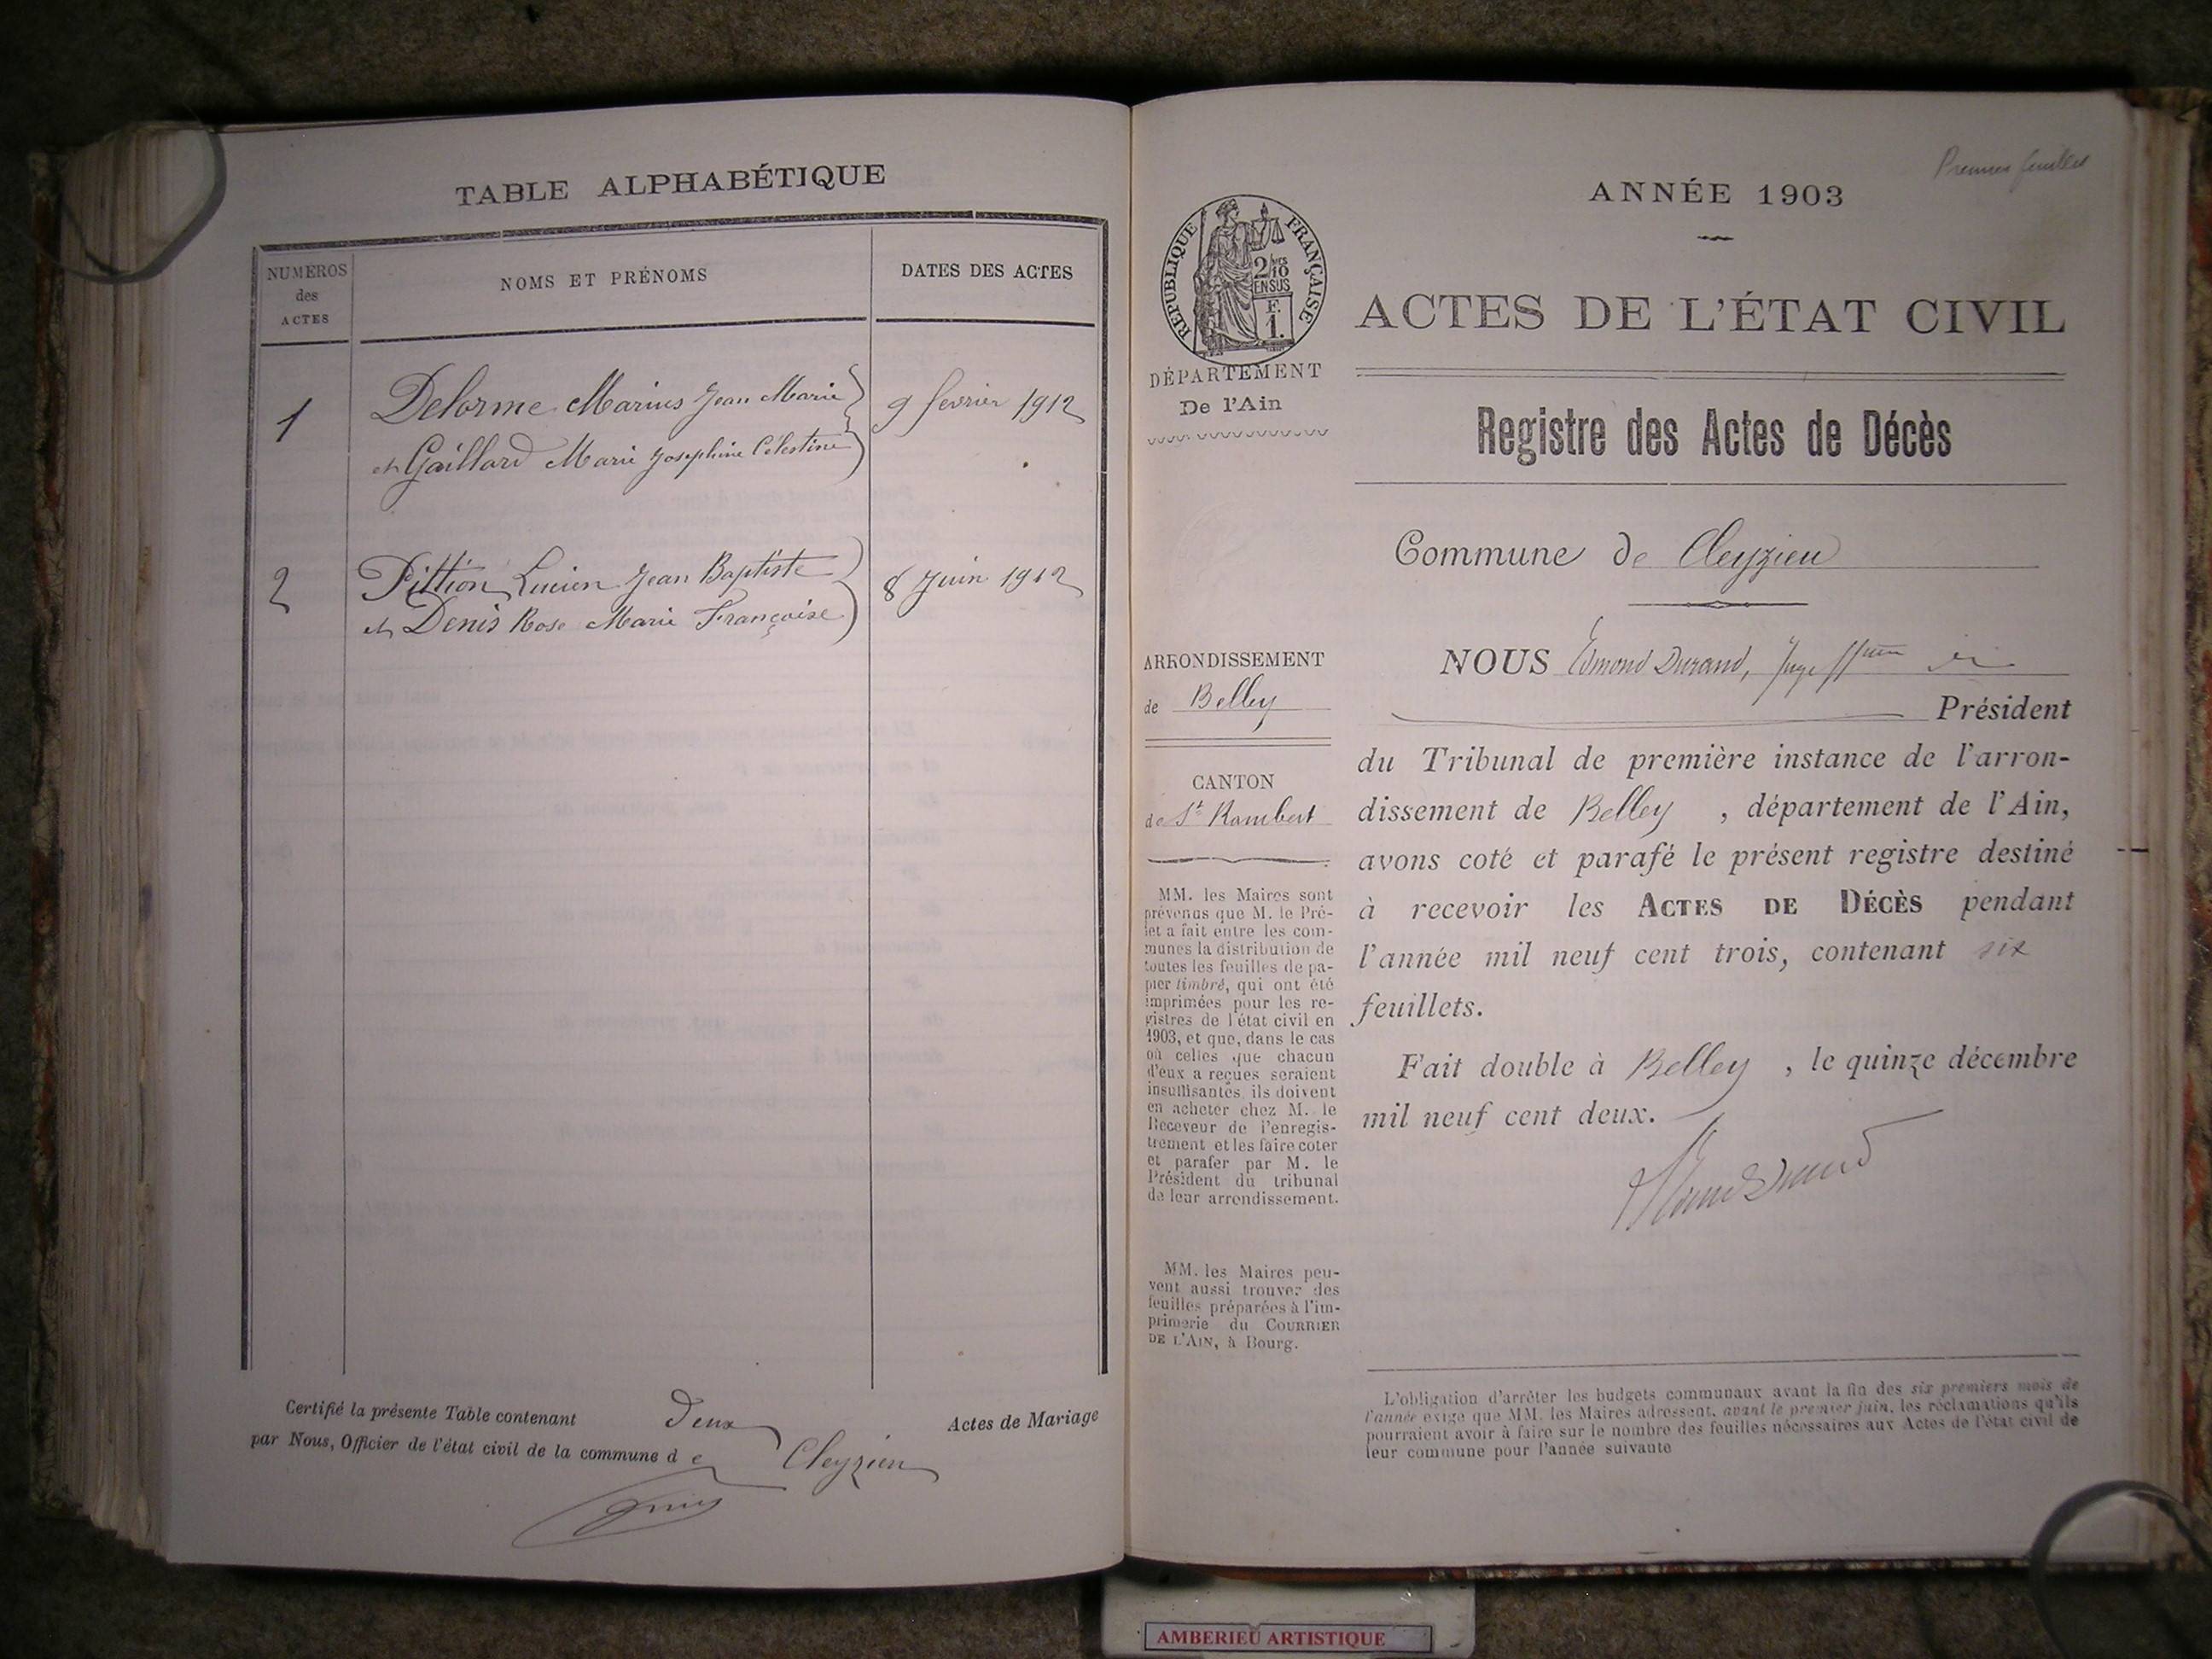 TABLE ALPHABÉTIQUE
NUMÉROS
des
ACTES
NOMS ET PRÉNOMS
DATES DES ACTES
1
Delorme Marius Jean Marie
et Gaillard Marie Joséphine Célestine
9 fevrier 1912
2
Pittion Lucien Jean Baptiste
et Denis Rose Marie Françoise
8 Juin 1912
Certifié la présente Table contenant deux Actes de Mariage
par Nous, Officier de l'état civil de la commune de Cleyzieu
ANNÉE 1903
RÉPUBLIQUE FRANÇAISE
2/10
EN SUS
F.
1.
DÉPARTEMENT
De l'Ain
ARRONDISSEMENT
de Belley
CANTON
de St Rambert
MM. les Maires sont
prévenus que M. le Pré-
fet a fait entre les com-
munes la distribution de
toutes les feuilles de pa-
pier timbré, qui ont été
imprimées pour les re-
gistres de l'état civil en
1903, et que, dans le cas
où celles que chacun
d'eux a reçues seraient
insuffisantes, ils doivent
en acheter chez M. le
Receveur de l'enregis-
trement et les faire coter
et parafer par M. le
Président du tribunal
de leur arrondissement.
MM. les Maires peu-
vent aussi trouver des
feuilles préparées à l'im-
primerie du COURRIER
DE L'AIN, à Bourg.
ACTES DE L'ÉTAT CIVIL
Registre des Actes de Décès
Commune de Cleyzieu
NOUS Edmond Durand, Juge
Président
du Tribunal de première instance de l'arron-
dissement de Belley , département de l'Ain,
avons coté et parafé le présent registre destiné
à recevoir les ACTES DE DÉCÈS pendant
l'année mil neuf cent trois, contenant six
feuillets.
Fait double à Belley , le quinze décembre
mil neuf cent deux.
L'obligation d'arrêter les budgets communaux avant la fin des six premiers mois de
l'année exige que MM. les Maires adressent, avant le premier juin, les réclamations qu'ils
pourraient avoir à faire sur le nombre des feuilles nécessaires aux Actes de l'état civil de
leur commune pour l'année suivante
AMBERIEU ARTISTIQUE